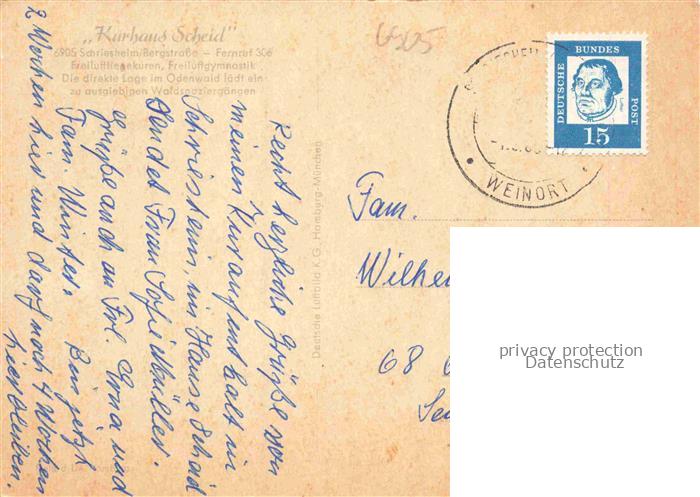 „Kurhaus Scheid"
6905 Schriesheim/Bergstraße — Fernruf 306
Freiluftliegekuren, Freiluftgymnastik
Die direkte Lage im Odenwald lädt ein
zu ausgiebigen Waldspaziergängen
6905
DEUTSCHE BUNDES POST
15
WEINORT
Deutsche Luftbild K.G. Hamburg-München
Recht herzliche Grüße von
meinem Kuraufenthalt in
Schriesheim, im Hause Scheid
sendet Frau Sofie Müller.
Grüße auch an Frl. Erna und
Fam. Winter. Bin jetzt
2 Wochen hier und darf noch 4 Wochen
hierbleiben.
Fam.
Wilhe
68
Se
privacy protection
Datenschutz